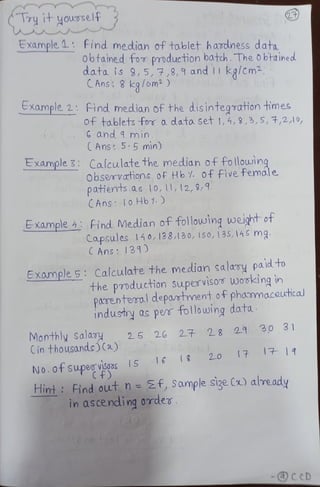 Try it yourself
27
Example 1 : Find median of tablet hardness data
obtained for production batch. The obtained
data is 8, 5, 7, 8, 9 and 11 kg/cm2.
(Ans: 8 kg/cm2)
Example 2 : Find median of the disintegration times
of tablets for a data set 1, 4, 8, 3, 5, 7, 2, 10,
6 and 9 min
(Ans: 5.5 min)
Example 3 : Calculate the median of following
Observations of Hb % of five female
patients as 10, 11, 12, 8, 9.
(Ans: 10 Hb %)
Example 4 : Find Median of following weight of
Capsules 140, 138, 130, 150, 135, 145 mg.
(Ans: 139)
Example 5 : Calculate the median salary paid to
the production supervisor working in
parenteral department of pharmaceutical
industry as per following data.
Monthly salary 25 26 27 28 29 30 31
(in thousands)(x)
No. of supervisors 15 16 18 20 17 17 19
(f)
Hint : Find out n = Σf, Sample size (x) already
in ascending order.